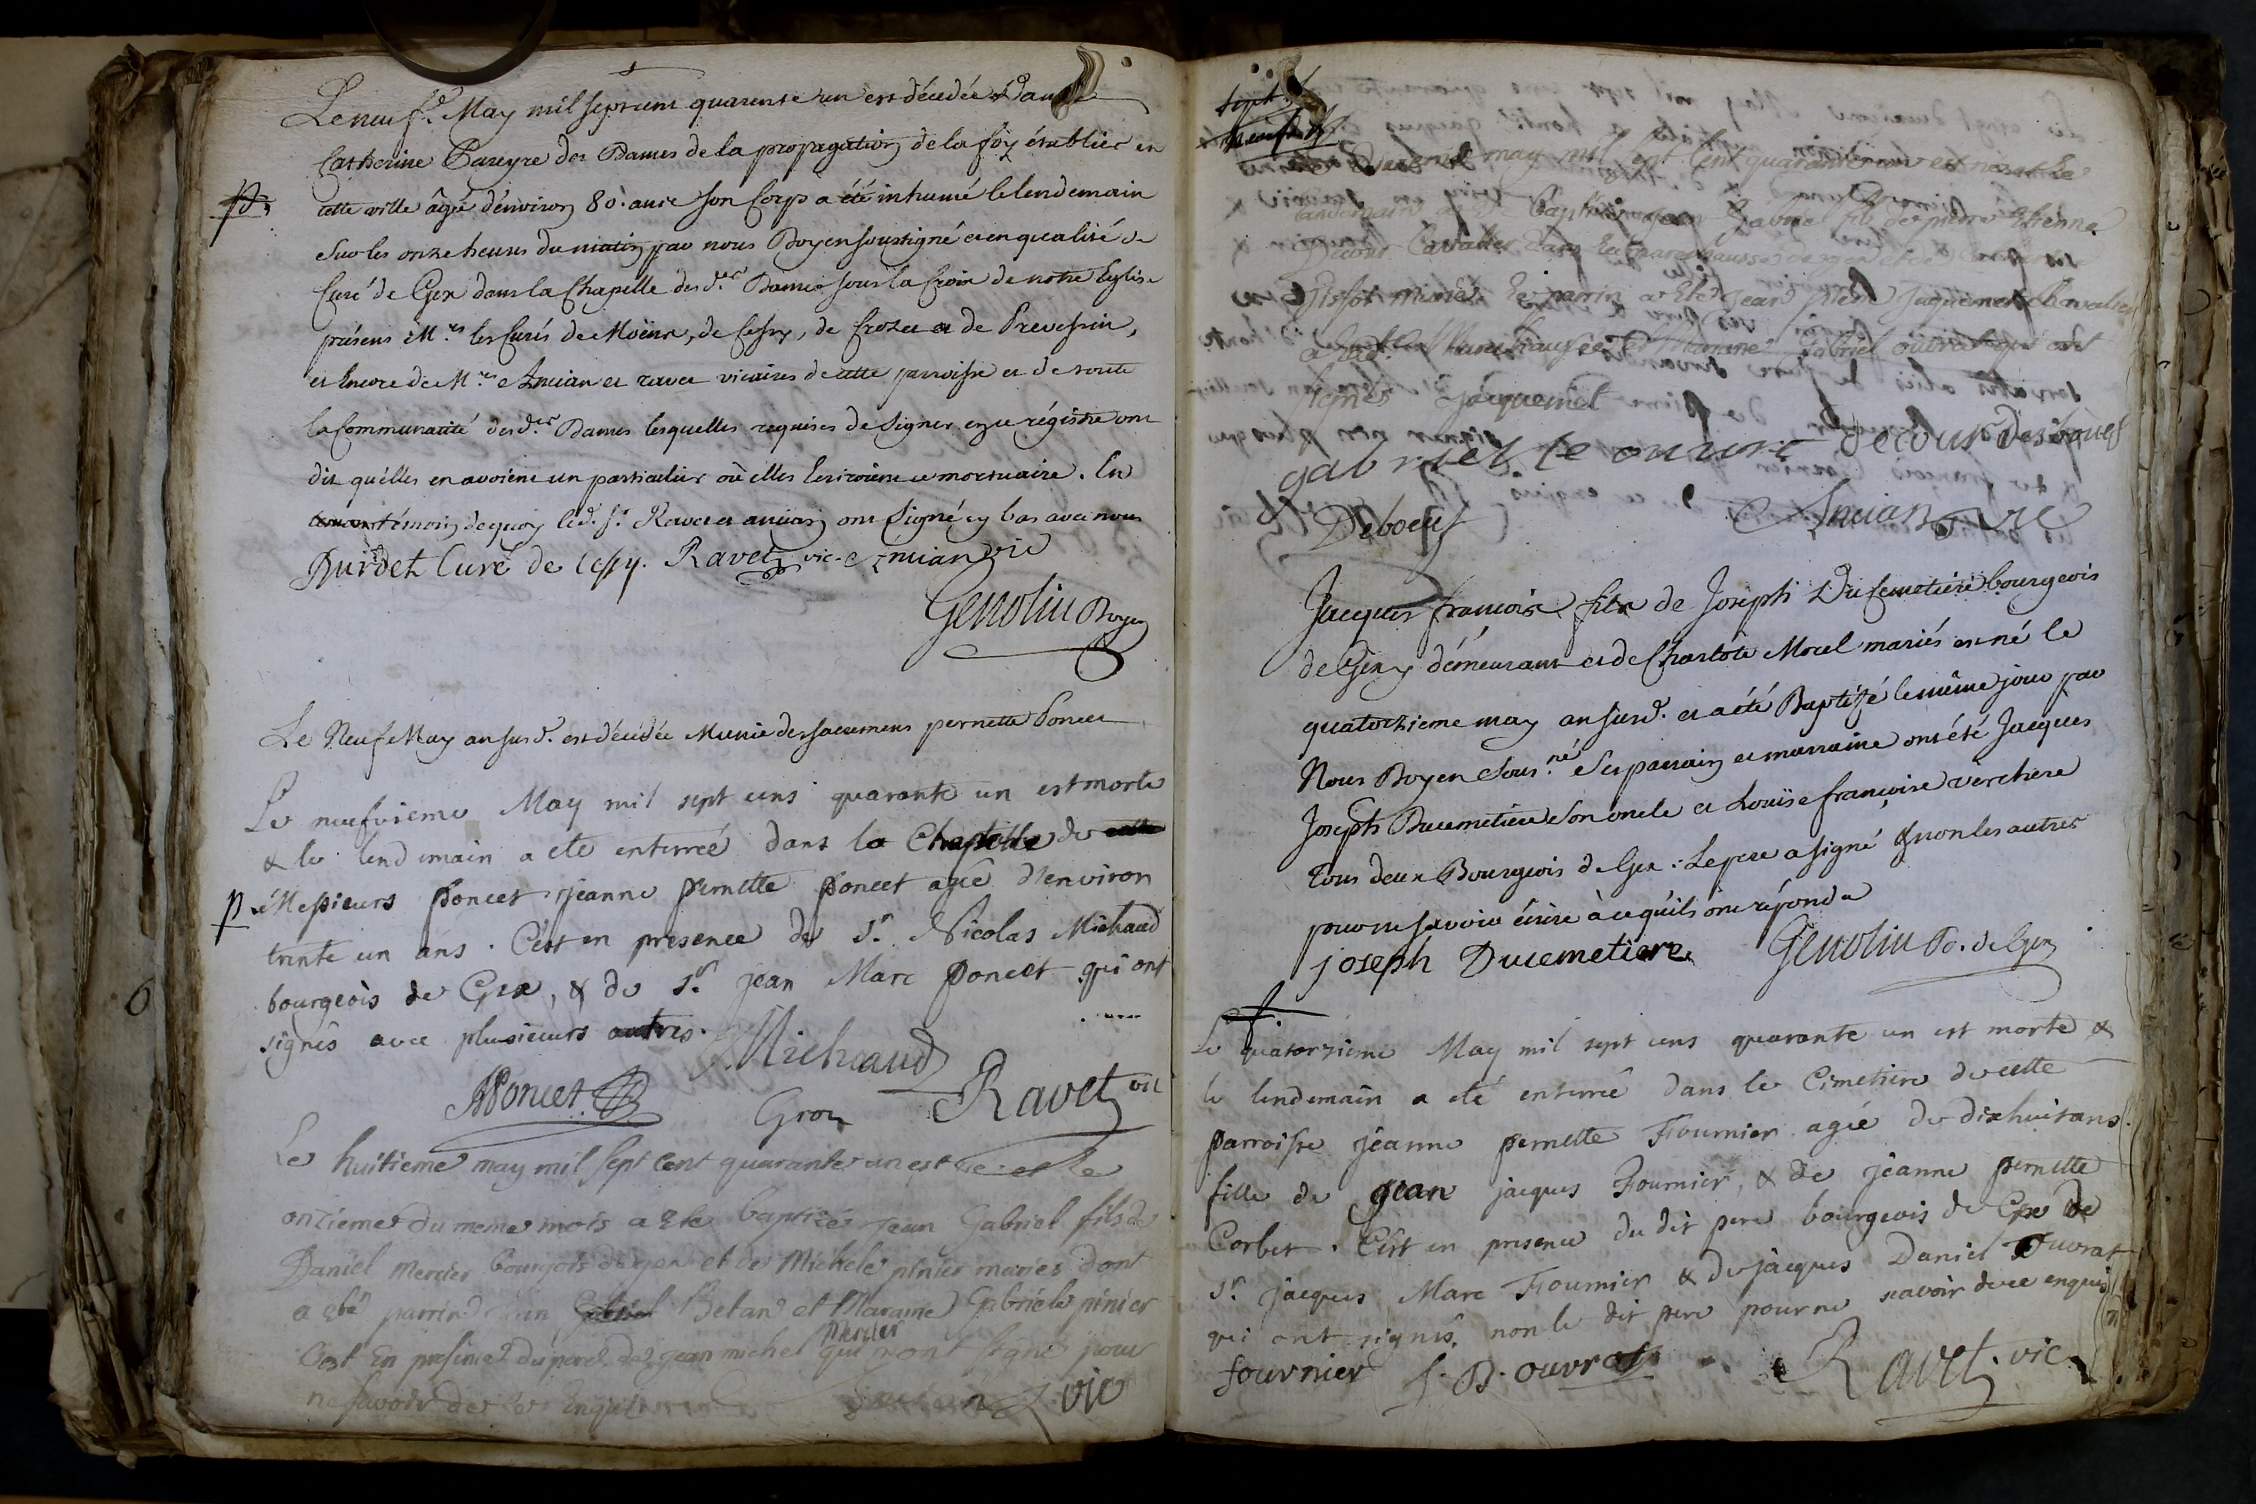 Le neuf.e May mil sept cent quarante un est décédée Dame
Catherine Pareyre des Dames de la propagation de la foy établies en
cette ville âgée d'environ 80. ans Son Corps a été inhumé le lendemain
Sur les onze heures du matin par nous Doyen soussigné et en qualité de
Curé de Gex dans la Chapelle des d.es Dames sous la Croix de notre Eglise
présens M.rs les Curés de Moëns, de Cessy, de Crozet et de Prevessin,
et Encore de M.rs Ancian et ravet vicaires de cette parroisse et de toute
la Communauté des d.es Dames lesquelles requises de Signer en ce régistre ont
dit qu'elles en avoient un particulier où elles Ecrivoient ce mortuaire. En
témoin de quoy le d. S.r Ravet et ancian ont Signé cy bas avec nous
Burdet Curé de Cessy. Ravet vic. Ancian vic
Genolin Doyen
Le Neuf May an susd. est décédée Munie des sacremens pernette Poncet
p.
Le neufvieme May mil sept cens quarante un est morte
& le lendemain a eté enterreé dans la Chapelle de
Messieurs Poncet jeanne pernette Poncet ageé d'environ
trente un ans. C'est en presence de S.r Nicolas Michaud
bourgeois de Gex, & de S.r jean Marc Poncet qui ont
signés avec plusieurs autres.
Michaud
Poncet Gros Ravet vic
Le huitieme may mil sept cent quarante un est né et le
onzieme du meme mois a ete baptizé jean Gabriel fils de
Daniel Mercier bourgois de gex et de Michele pinier mariés dont
a eté parrin jean Belan et Maraine Gabriele pinier
C'est En presence du pere de jean michel perrier qui n'ont signé pour
ne savoir de ce Enquis vic
may mil sept Cent quarante un est né et le
lendemain a eté Baptisé jean Gabriel fils de pierre Etienne
Decour Cavalier dans la marechaussée de gex et de
mariés le parrin a eté jean jaquemet Cavalier
Marechaussée Gabriel ouvrat qui ont
signés jaquemet
gabriel le ouvre decour
Deboeuf Ancian vic
Jacques françois fils de Joseph Ducemetiere bourgeois
de Gex y démeurant et de Charlote Morel mariés est né le
quatorzieme may an susd. et a été Baptizé le même jour par
Nous Doyen Sous.né Ses parrain et marraine ont été Jacques
Joseph Ducemetiere Son oncle et Louïse françoise verchere
tous deux Bourgeois de Gex. Le pere a signé & non les autres
pour ne savoir écrire à ce qu'ils ont répondu
joseph Ducemetiere Genolin Do. de Gex
Le quatorzieme May mil sept cens quarante un est morte &
le lendemain a eté enterreé dans le Cimetiere de cette
parroisse jeanne pernette Fournier ageé de dix huit ans
fille de jean jacques Fournier, & de jeanne pernette
Corbet. C'est en presence du dit pere bourgeois de Gex de
S.r jacques Marc Fournier & de jacques Daniel Ouvrat
qui ont signés, non le dit pere pour ne scavoir de ce enquis
fournier J. D. ouvrat Ravet. vic.